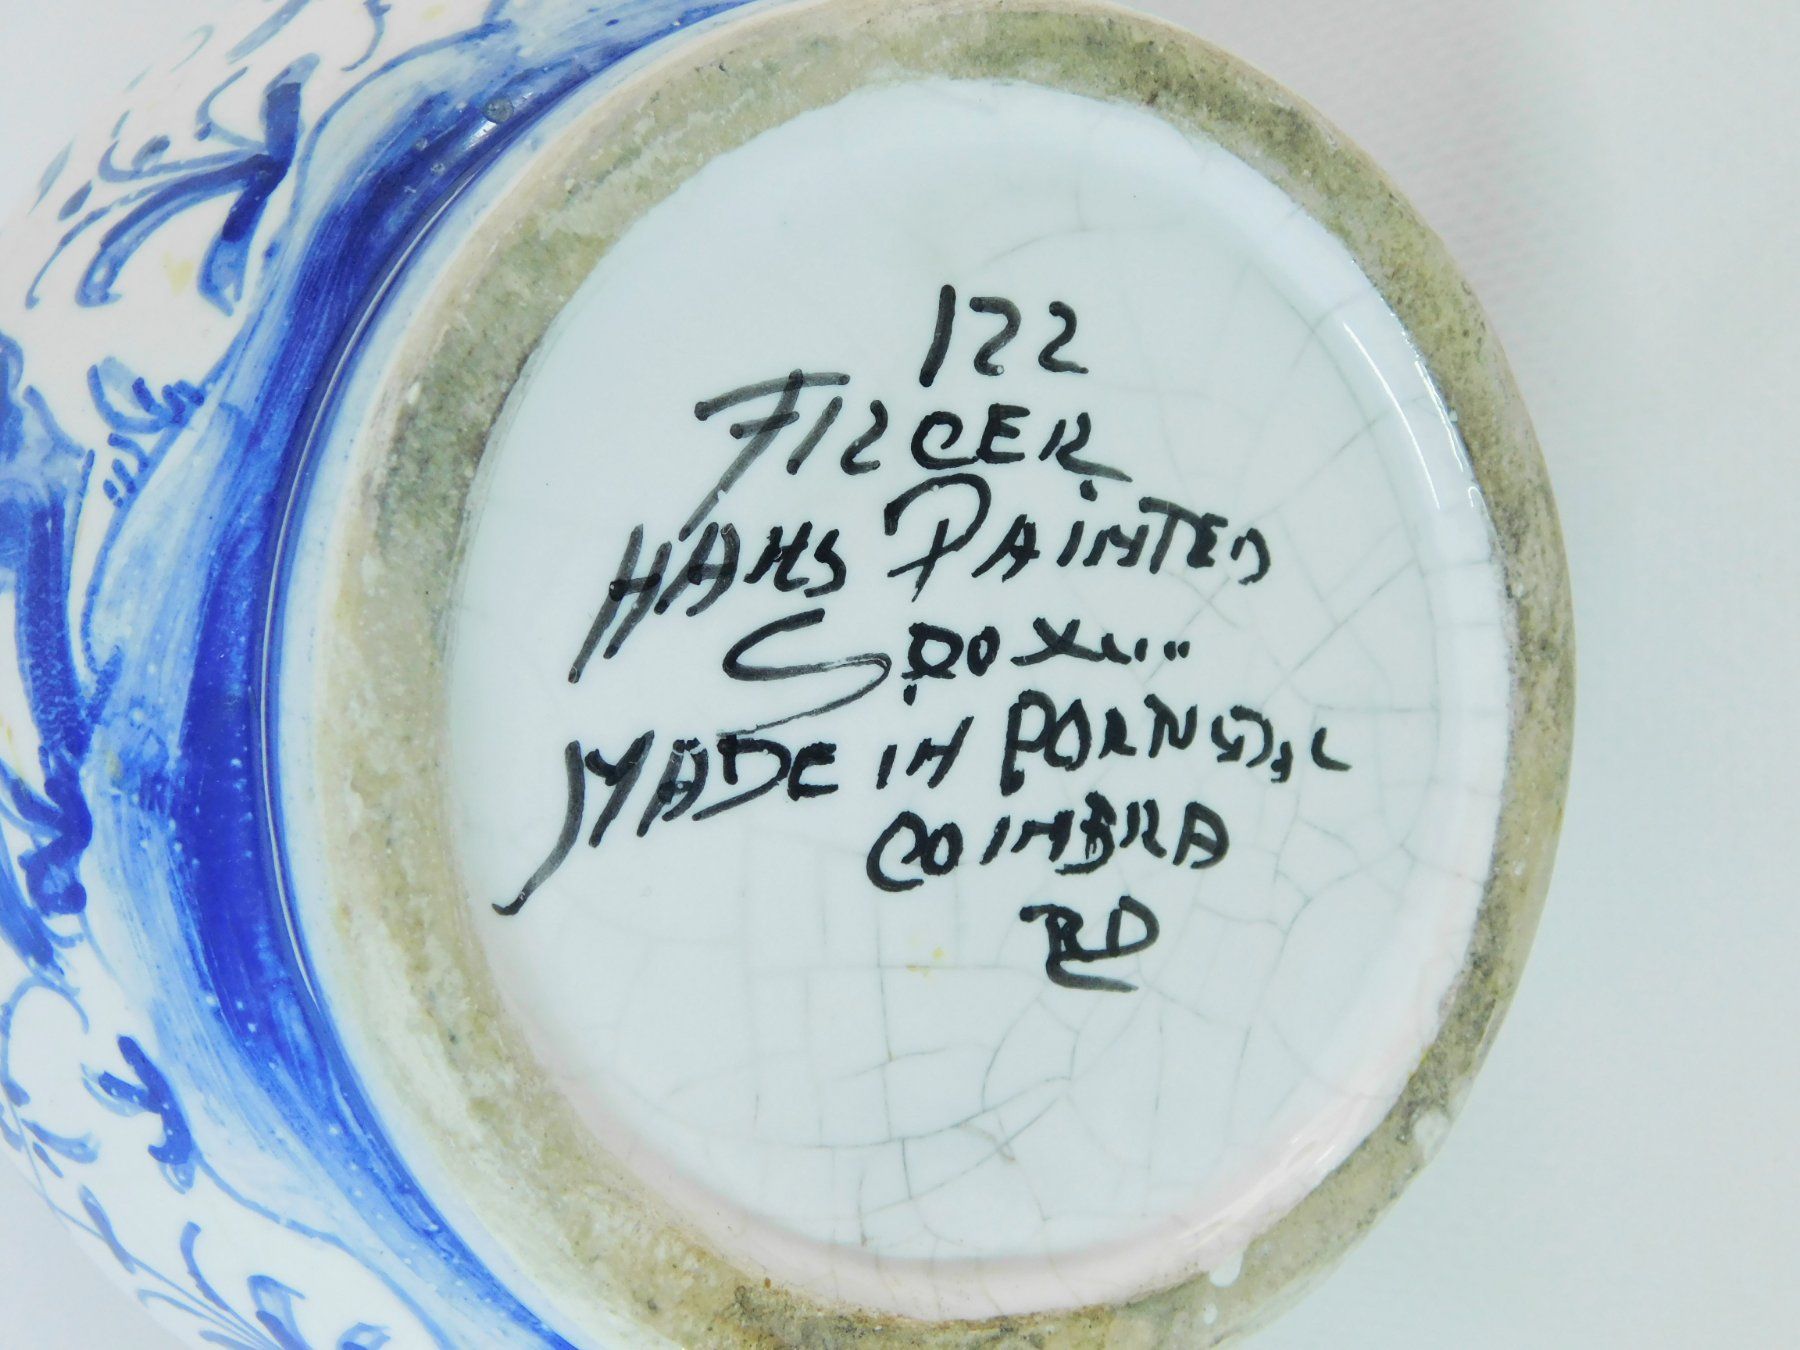 122
FIRCER
HAND PAINTED
MADE IN PORTUGAL
COIMBRA
RD